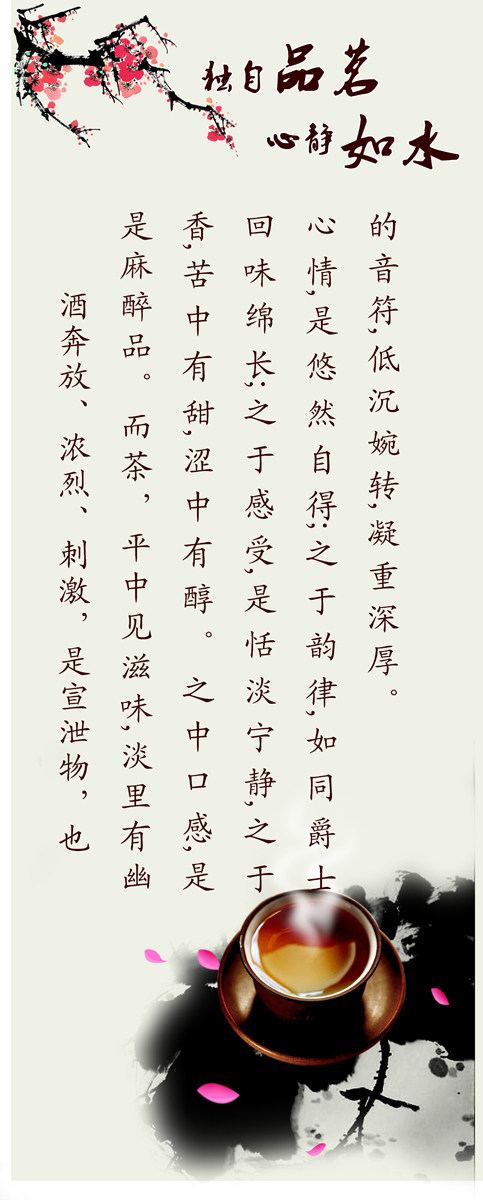 独自品茗
心静如水
酒奔放、浓烈、刺激，是宣泄物，也
是麻醉品。而茶，平中见滋味,淡里有幽
香,苦中有甜,涩中有醇。之中口感,是
回味绵长;之于感受,是恬淡宁静,之于
心情,是悠然自得;之于韵律,如同爵士
的音符,低沉婉转,凝重深厚。